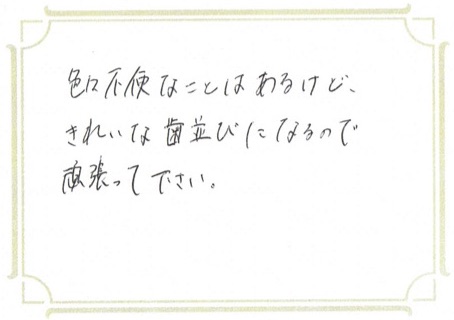 色々不便なことはあるけど、
きれいな歯並びになるので
頑張って下さい。